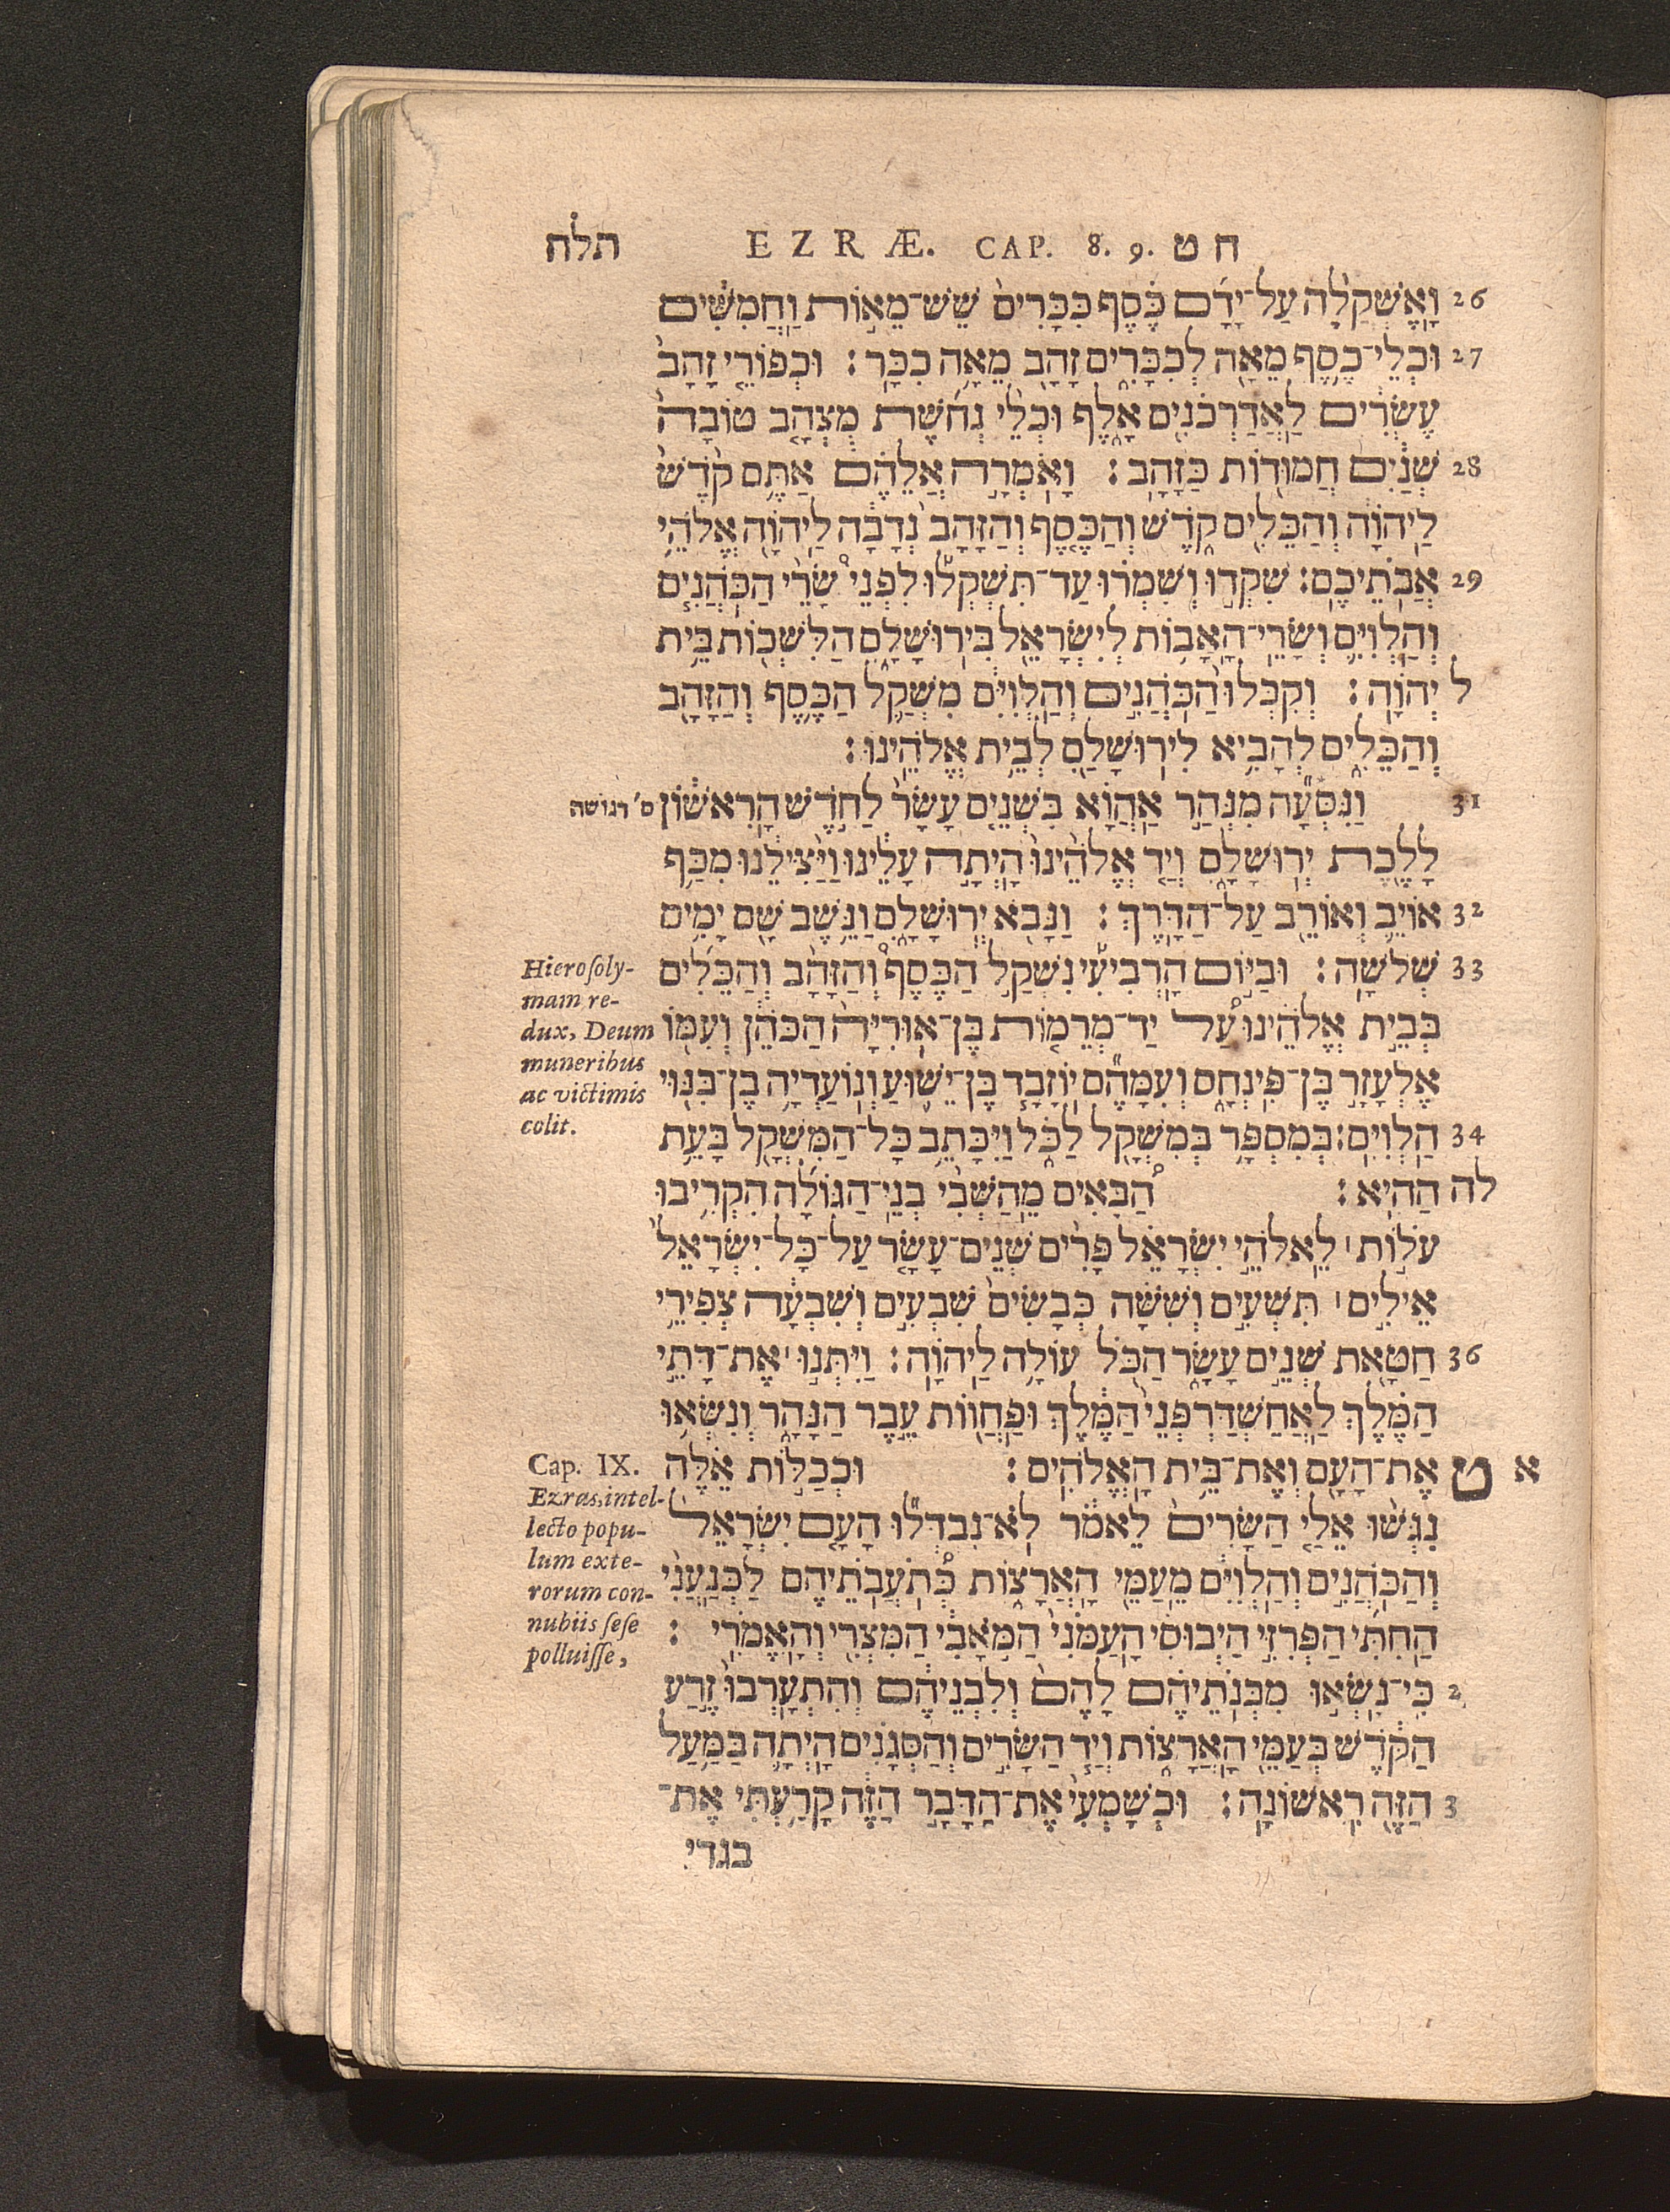 תלח EZRÆ. CAP. 8. 9. ח ט
26 וָאֶשְׁקֲלָה עַל־יָדָם כֶּסֶף כִּכָּרִים שֵׁשׁ־מֵאוֹת וַחֲמִשִּׁים
27 וּכְלֵי־כֶסֶף מֵאָה לְכִכָּרִים זָהָב מֵאָה כִכָּר׃ וּכְפוֹרֵי זָהָב
עֶשְׂרִים לַאֲדַרְכֹנִים אָלֶף וּכְלֵי נְחֹשֶׁת מֻצְהָב טוֹבָה
28 שְׁנַיִם חֲמוּדוֹת כַּזָּהָב׃ וָאֹמְרָה אֲלֵהֶם אַתֶּם קֹדֶשׁ
לַיהוָֹה וְהַכֵּלִים קֹדֶשׁ וְהַכֶּסֶף וְהַזָּהָב נְדָבָה לַיהוָֹה אֱלֹהֵי
29 אֲבֹתֵיכֶם׃ שִׁקְדוּ וְשִׁמְרוּ עַד־תִּשְׁקְלוּ לִפְנֵי שָׂרֵי הַכֹּהֲנִים
וְהַלְוִיִּם וְשָׂרֵי־הָאָבוֹת לְיִשְׂרָאֵל בִּירוּשָׁלִָם הַלִּשְׁכוֹת בֵּית
ל יְהוָֹה׃ וְקִבְּלוּ הַכֹּהֲנִים וְהַלְוִיִּם מִשְׁקַל הַכֶּסֶף וְהַזָּהָב
וְהַכֵּלִים לְהָבִיא לִירוּשָׁלִַם לְבֵית אֱלֹהֵינוּ׃
31 וַנִּסְעָה מִנְּהַר אַהֲוָא בִּשְׁנֵים עָשָׂר לַחֹדֶשׁ הָרִאשׁוֹן ס' דגושה
לָלֶכֶת יְרוּשָׁלִָם וְיַד אֱלֹהֵינוּ הָיְתָה עָלֵינוּ וַיַּצִּילֵנוּ מִכַּף
32 אוֹיֵב וְאוֹרֵב עַל־הַדָּרֶךְ׃ וַנָּבֹא יְרוּשָׁלִָם וַנֵּשֶׁב שָׁם יָמִים
33 שְׁלֹשָׁה׃ וּבַיּוֹם הָרְבִיעִי נִשְׁקַל הַכֶּסֶף וְהַזָּהָב וְהַכֵּלִים
בְּבֵית אֱלֹהֵינוּ עַל יַד־מְרֵמוֹת בֶּן־אוּרִיָּה הַכֹּהֵן וְעִמּוֹ
אֶלְעָזָר בֶּן־פִּינְחָס וְעִמָּהֶם יוֹזָבָד בֶּן־יֵשׁוּעַ וְנוֹעַדְיָה בֶן־בִּנּוּי
34 הַלְוִיִּם׃ בְּמִסְפָּר בְּמִשְׁקָל לַכֹּל וַיִּכָּתֵב כָּל־הַמִּשְׁקָל בָּעֵת
לה הַהִיא׃ הַבָּאִים מֵהַשְּׁבִי בְנֵי־הַגּוֹלָה הִקְרִיבוּ
עֹלוֹת ׀ לֵאלֹהֵי יִשְׂרָאֵל פָּרִים שְׁנֵים־עָשָׂר עַל־כָּל־יִשְׂרָאֵל
אֵילִים ׀ תִּשְׁעִים וְשִׁשָּׁה כְּבָשִׂים שִׁבְעִים וְשִׁבְעָה צְפִירֵי
36 חַטָּאת שְׁנֵים עָשָׂר הַכֹּל עוֹלָה לַיהוָֹה׃ וַיִּתְּנוּ ׀ אֶת־דָּתֵי
הַמֶּלֶךְ לַאֲחַשְׁדַּרְפְּנֵי הַמֶּלֶךְ וּפַחֲווֹת עֵבֶר הַנָּהָר וְנִשְּׂאוּ
א ט אֶת־הָעָם וְאֶת־בֵּית הָאֱלֹהִים׃ וּכְכַלּוֹת אֵלֶּה
נִגְּשׁוּ אֵלַי הַשָּׂרִים לֵאמֹר לֹא־נִבְדְּלוּ הָעָם יִשְׂרָאֵל
וְהַכֹּהֲנִים וְהַלְוִיִּם מֵעַמֵּי הָאֲרָצוֹת כְּתֹעֲבֹתֵיהֶם לַכְּנַעֲנִי
הַחִתִּי הַפְּרִזִּי הַיְבוּסִי הָעַמֹּנִי הַמֹּאָבִי הַמִּצְרִי וְהָאֱמֹרִי׃
2 כִּי־נָשְׂאוּ מִבְּנֹתֵיהֶם לָהֶם וְלִבְנֵיהֶם וְהִתְעָרְבוּ זֶרַע
הַקֹּדֶשׁ בְּעַמֵּי הָאֲרָצוֹת וְיַד הַשָּׂרִים וְהַסְּגָנִים הָיְתָה בַּמַּעַל
3 הַזֶּה רִאשׁוֹנָה׃ וּכְשָׁמְעִי אֶת־הַדָּבָר הַזֶּה קָרַעְתִּי אֶת־
בגדי
Hierosoly-
mam re-
dux, Deum
muneribus
ac victimis
colit.
Cap. IX.
Ezras, intel-
lecto popu-
lum exte-
rorum con-
nubiis sese
polluisse,